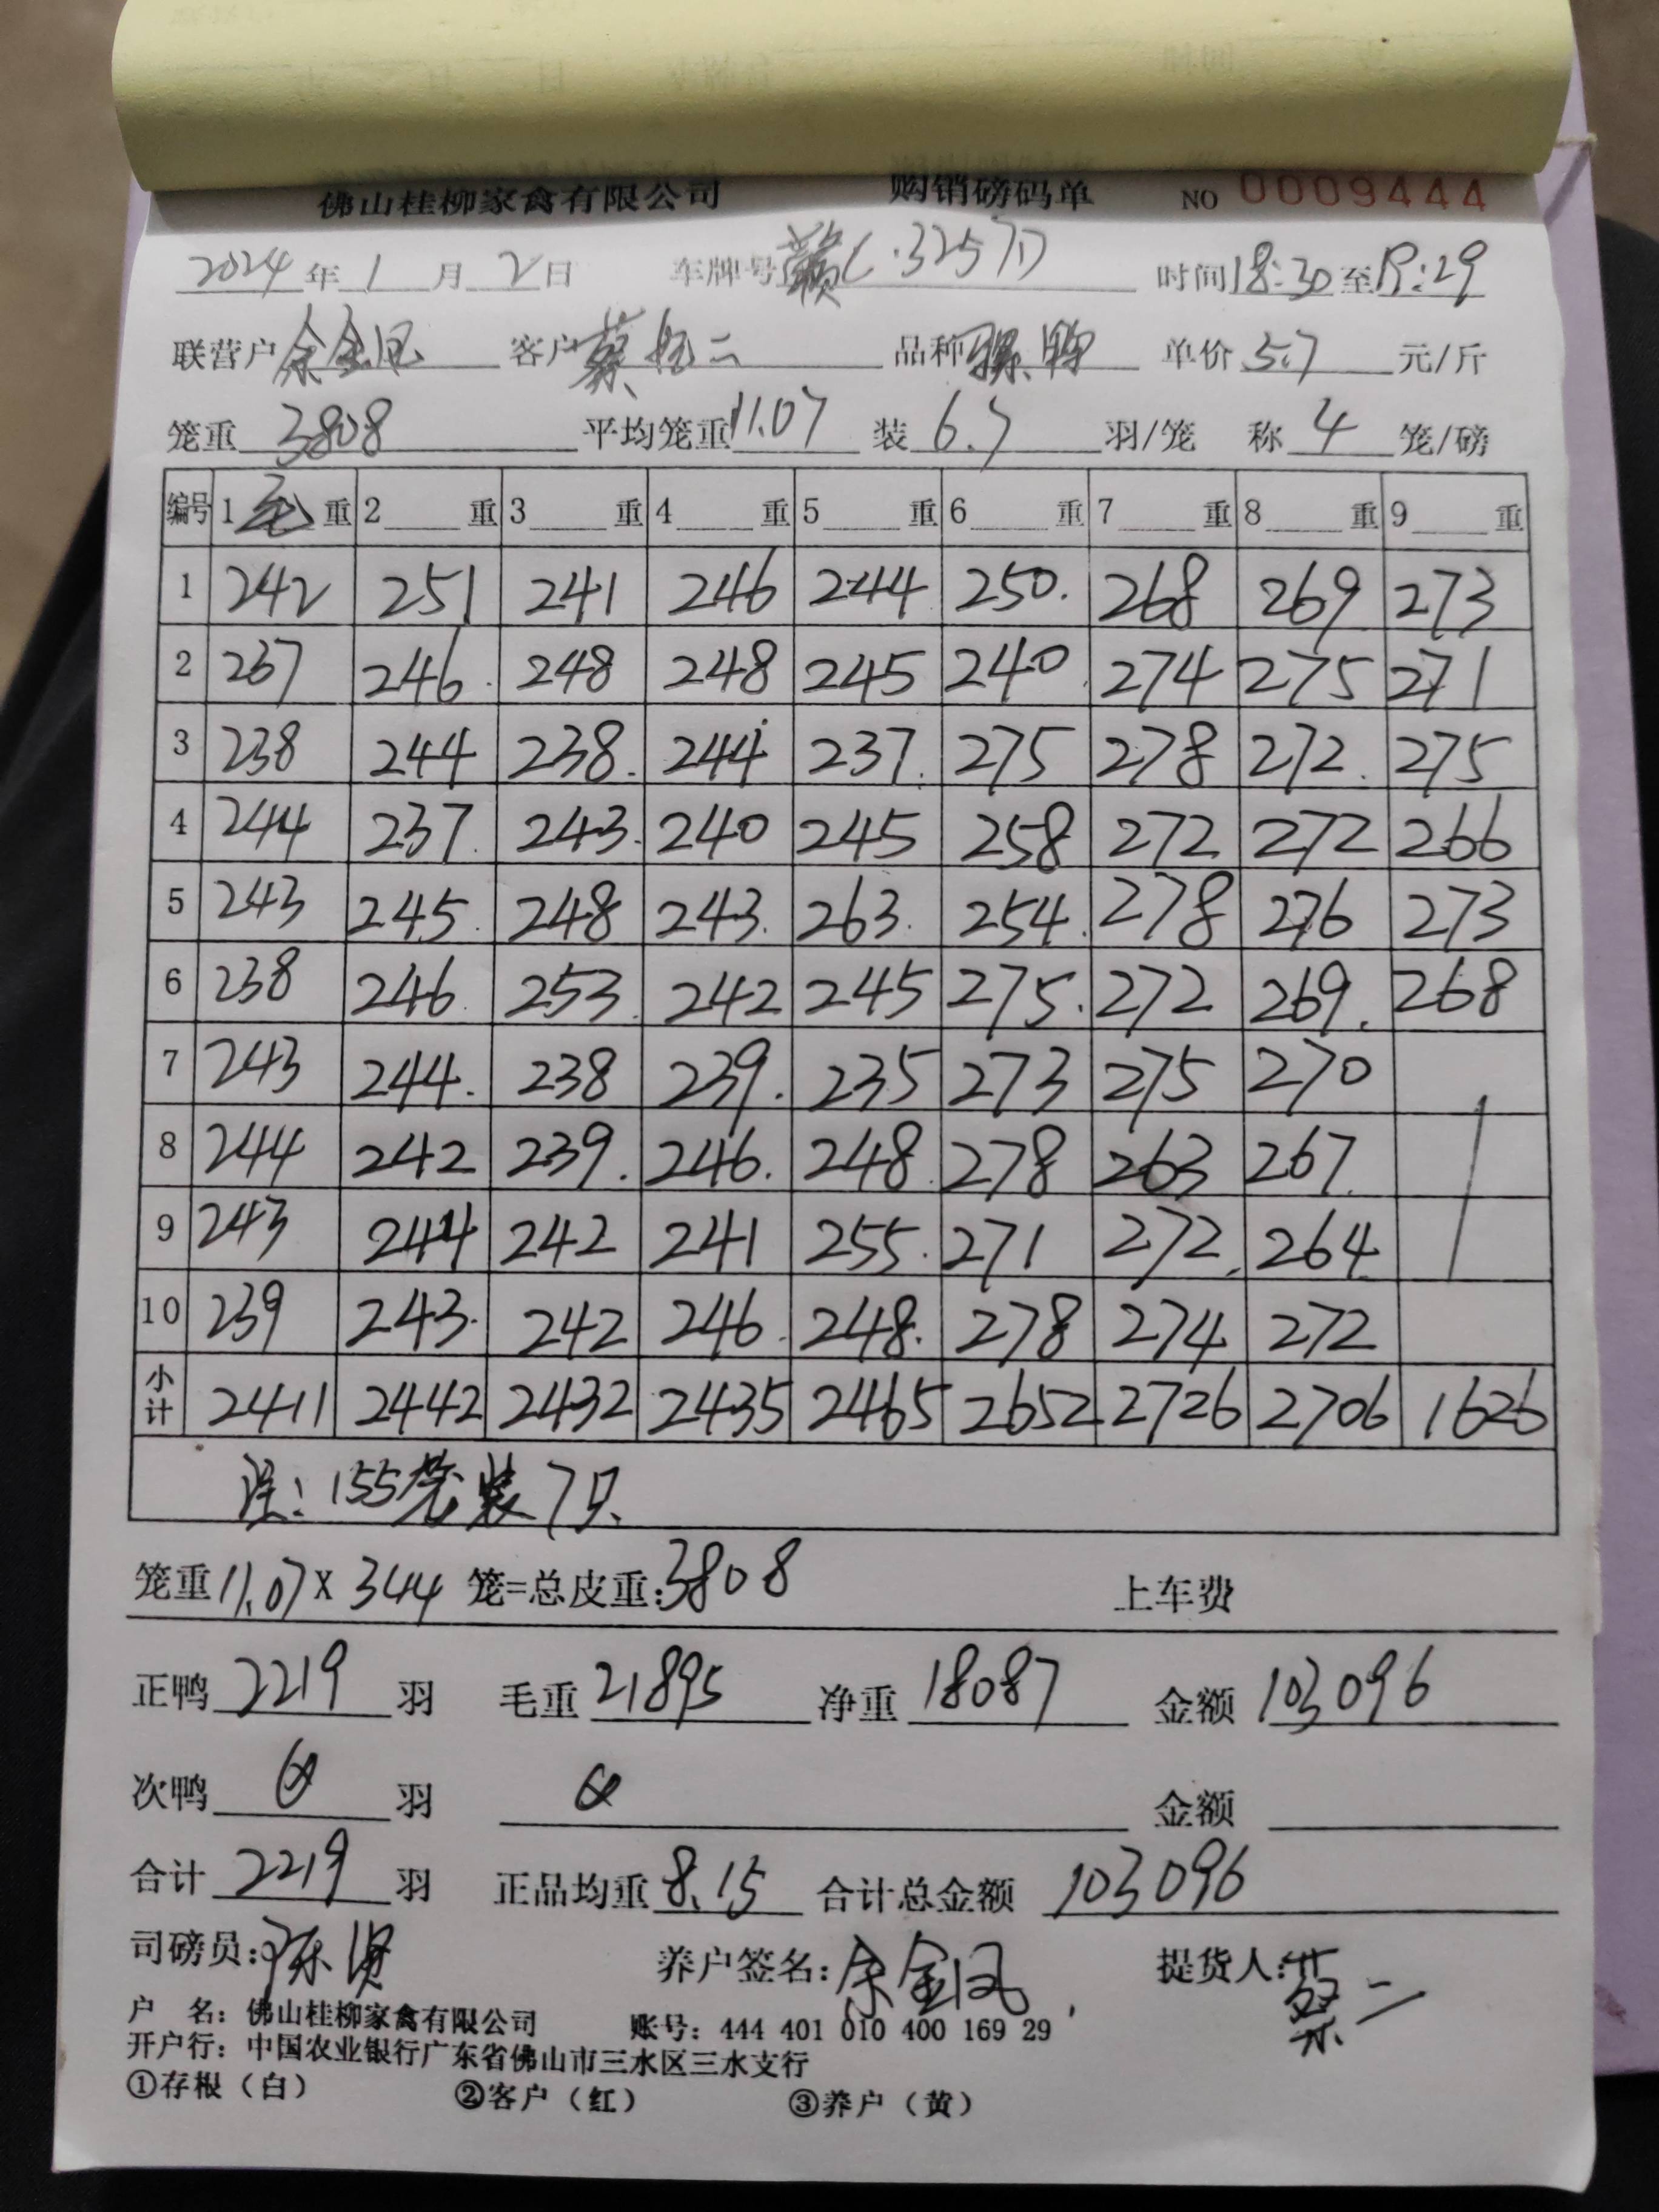 佛山桂柳家禽有限公司 购销磅码单 NO 0009444
2024年1月2日 车牌号赣C·3257 时间18:30至19:29
联营户余金凤 客户蔡二 品种骡鸭 单价5.7元/斤
笼重3808 平均笼重11.07 装6.5羽/笼 称4笼/磅
编号 1毛重 2重 3重 4重 5重 6重 7重 8重 9重
1 242 251 241 246 244 250. 268 269 273
2 237 246. 248 248 245 240. 274 275 271
3 238 244 238. 244 237. 275 278 272. 275
4 244 237. 243. 240 245 258 272 272 266
5 243 245. 248 243. 263. 254. 278 276 273
6 238 246. 253. 242 245 275. 272 269. 268
7 243 244. 238 239. 235 273 275 270
8 244 242 239. 246. 248. 278 263 267.
9 243 244 242 241 255. 271 272. 264.
10 239 243. 242 246. 248. 278 274 272
小计 2411 2442 2432 2435 2465 2652 2726 2706 1626
注: 155笼装7只.
笼重11.07X344笼=总皮重:3808 上车费
正鸭2219羽 毛重21895 净重18087 金额103096
次鸭羽 金额
合计2219羽 正品均重8.15 合计总金额103096
司磅员:陈贤 养户签名:余金凤 提货人:蔡二
户 名: 佛山桂柳家禽有限公司 账号: 444 401 010 400 169 29
开户行: 中国农业银行广东省佛山市三水区三水支行
①存根(白) ②客户(红) ③养户(黄)